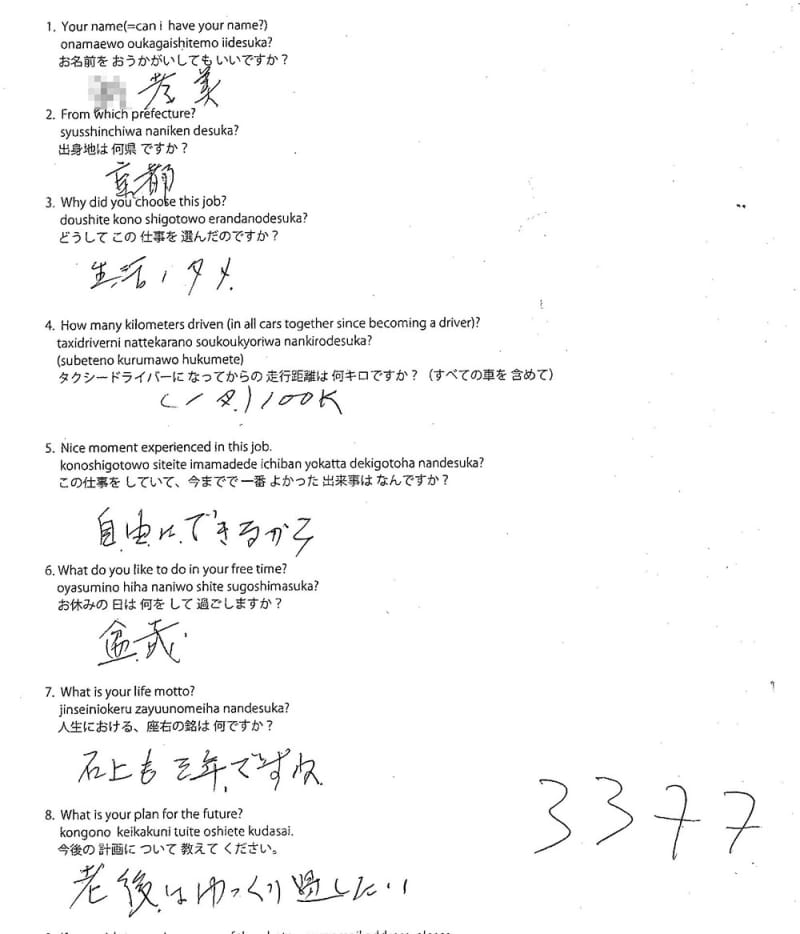 1. Your name(=can i have your name?)
onamaewo oukagaishitemo iidesuka?
お名前を おうかがいしても いいですか？
孝美
2. From which prefecture?
syusshinchiwa naniken desuka?
出身地は 何県 ですか？
京都
3. Why did you choose this job?
doushite kono shigotowo erandanodesuka?
どうして この 仕事を 選んだのですか？
生活ノタメ
4. How many kilometers driven (in all cars together since becoming a driver)?
taxidriverni nattekarano soukoukyoriwa nankirodesuka?
(subeteno kurumawo hukumete)
タクシードライバーに なってからの 走行距離は 何キロですか？（すべての車を 含めて）
100K
5. Nice moment experienced in this job.
konoshigotowo siteite imamadede ichiban yokatta dekigotoha nandesuka?
この仕事を していて、今までで 一番 よかった 出来事は なんですか？
自由にできるから
6. What do you like to do in your free time?
oyasumino hiha naniwo shite sugoshimasuka?
お休みの 日は 何を して 過ごしますか？
盆栽
7. What is your life motto?
jinseiniokeru zayuunomeiha nandesuka?
人生における、座右の銘は 何ですか？
石上も三年ですね
8. What is your plan for the future?
kongono keikakuni tuite oshiete kudasai.
今後の 計画に ついて 教えて ください。
老後はゆっくり過したい
3377